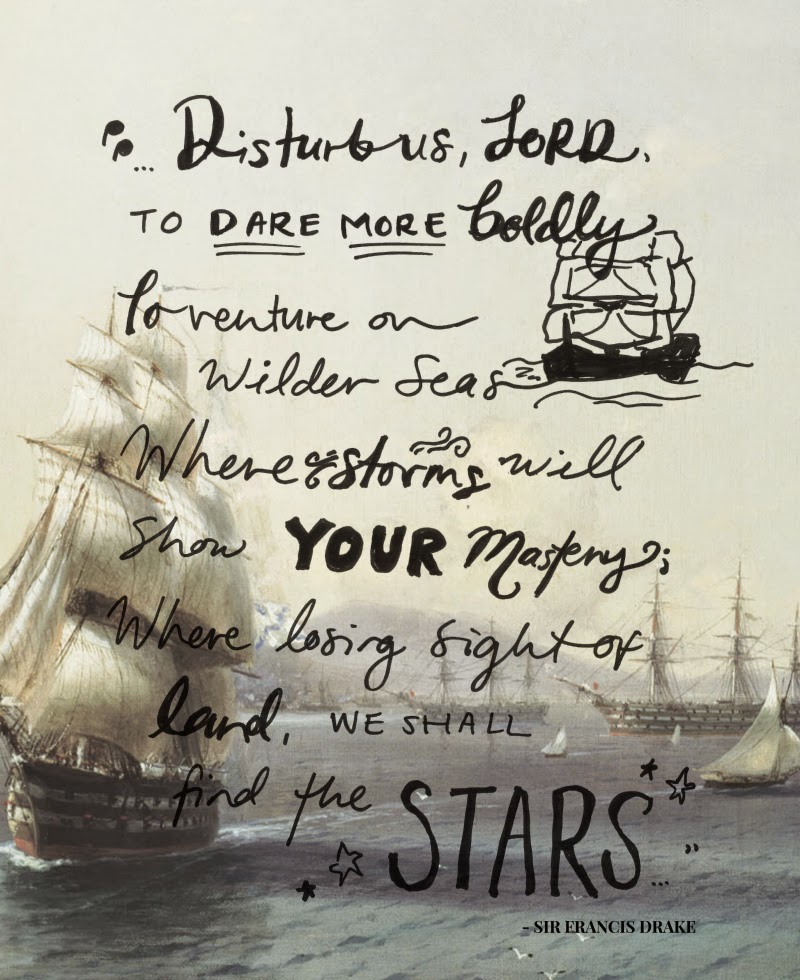 "... Disturb us, LORD,
TO DARE MORE boldly
To venture on
Wilder Seas
Where storms will
Show YOUR Mastery;
Where losing sight of
land, WE SHALL
find the STARS... "
- SIR FRANCIS DRAKE